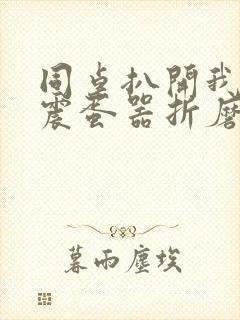 同桌扒開我
震蛋器折磨
暮雨塵埃